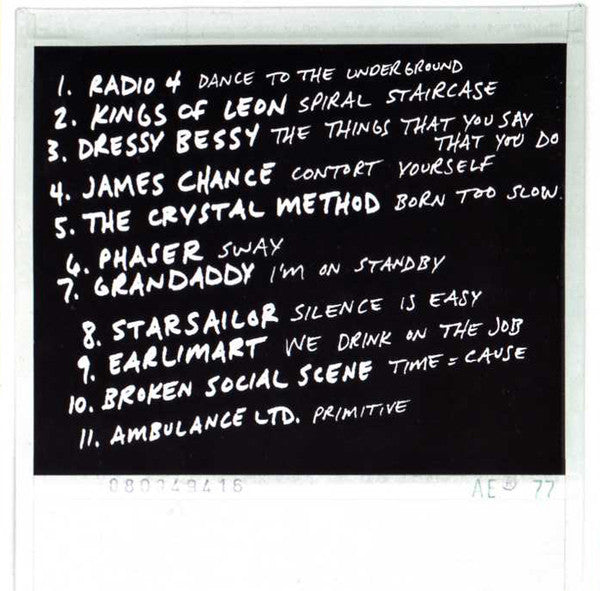 1. RADIO 4 DANCE TO THE UNDERGROUND
2. KINGS OF LEON SPIRAL STAIRCASE
3. DRESSY BESSY THE THINGS THAT YOU SAY
THAT YOU DO
4. JAMES CHANCE CONTORT YOURSELF
5. THE CRYSTAL METHOD BORN TOO SLOW.
6. PHASER SWAY
7. GRANDADDY I'M ON STANDBY
8. STARSAILOR SILENCE IS EASY
9. EARLIMART WE DRINK ON THE JOB
10. BROKEN SOCIAL SCENE TIME = CAUSE
11. AMBULANCE LTD. PRIMITIVE
080949416 AE 77